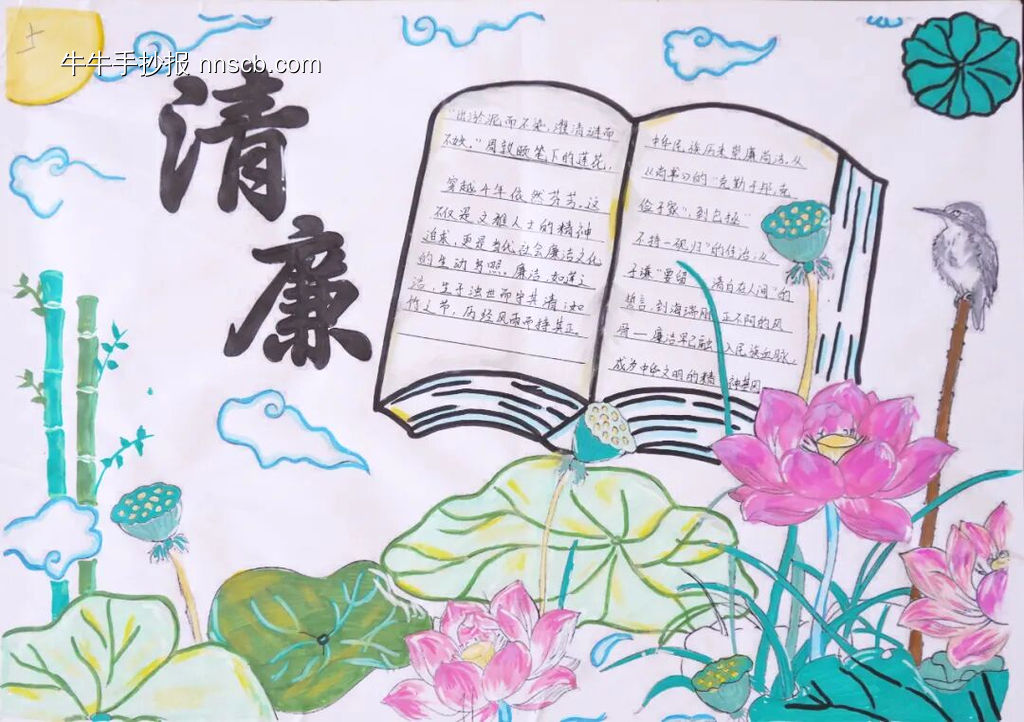 牛牛手抄报 nnscb.com
清
廉
"出淤泥而不染,濯清涟而
不妖。"周敦颐笔下的莲花,
穿越千年依然芬芳。这
不仅是文雅人士的精神
追求,更是当代社会廉洁文化
的生动写照。廉洁,如莲之
洁,生于浊世而守其清;如
竹之节,历经风雨而持其正。
中华民族历来崇廉尚洁。从
《尚书》的"克勤于邦,克
俭于家",到包拯"
不持一砚归"的佳话;从
于谦"要留 清白在人间"的
誓言,到海瑞刚 正不阿的风
骨—廉洁早已融 入民族血脉,
成为中华文明的精 神基因